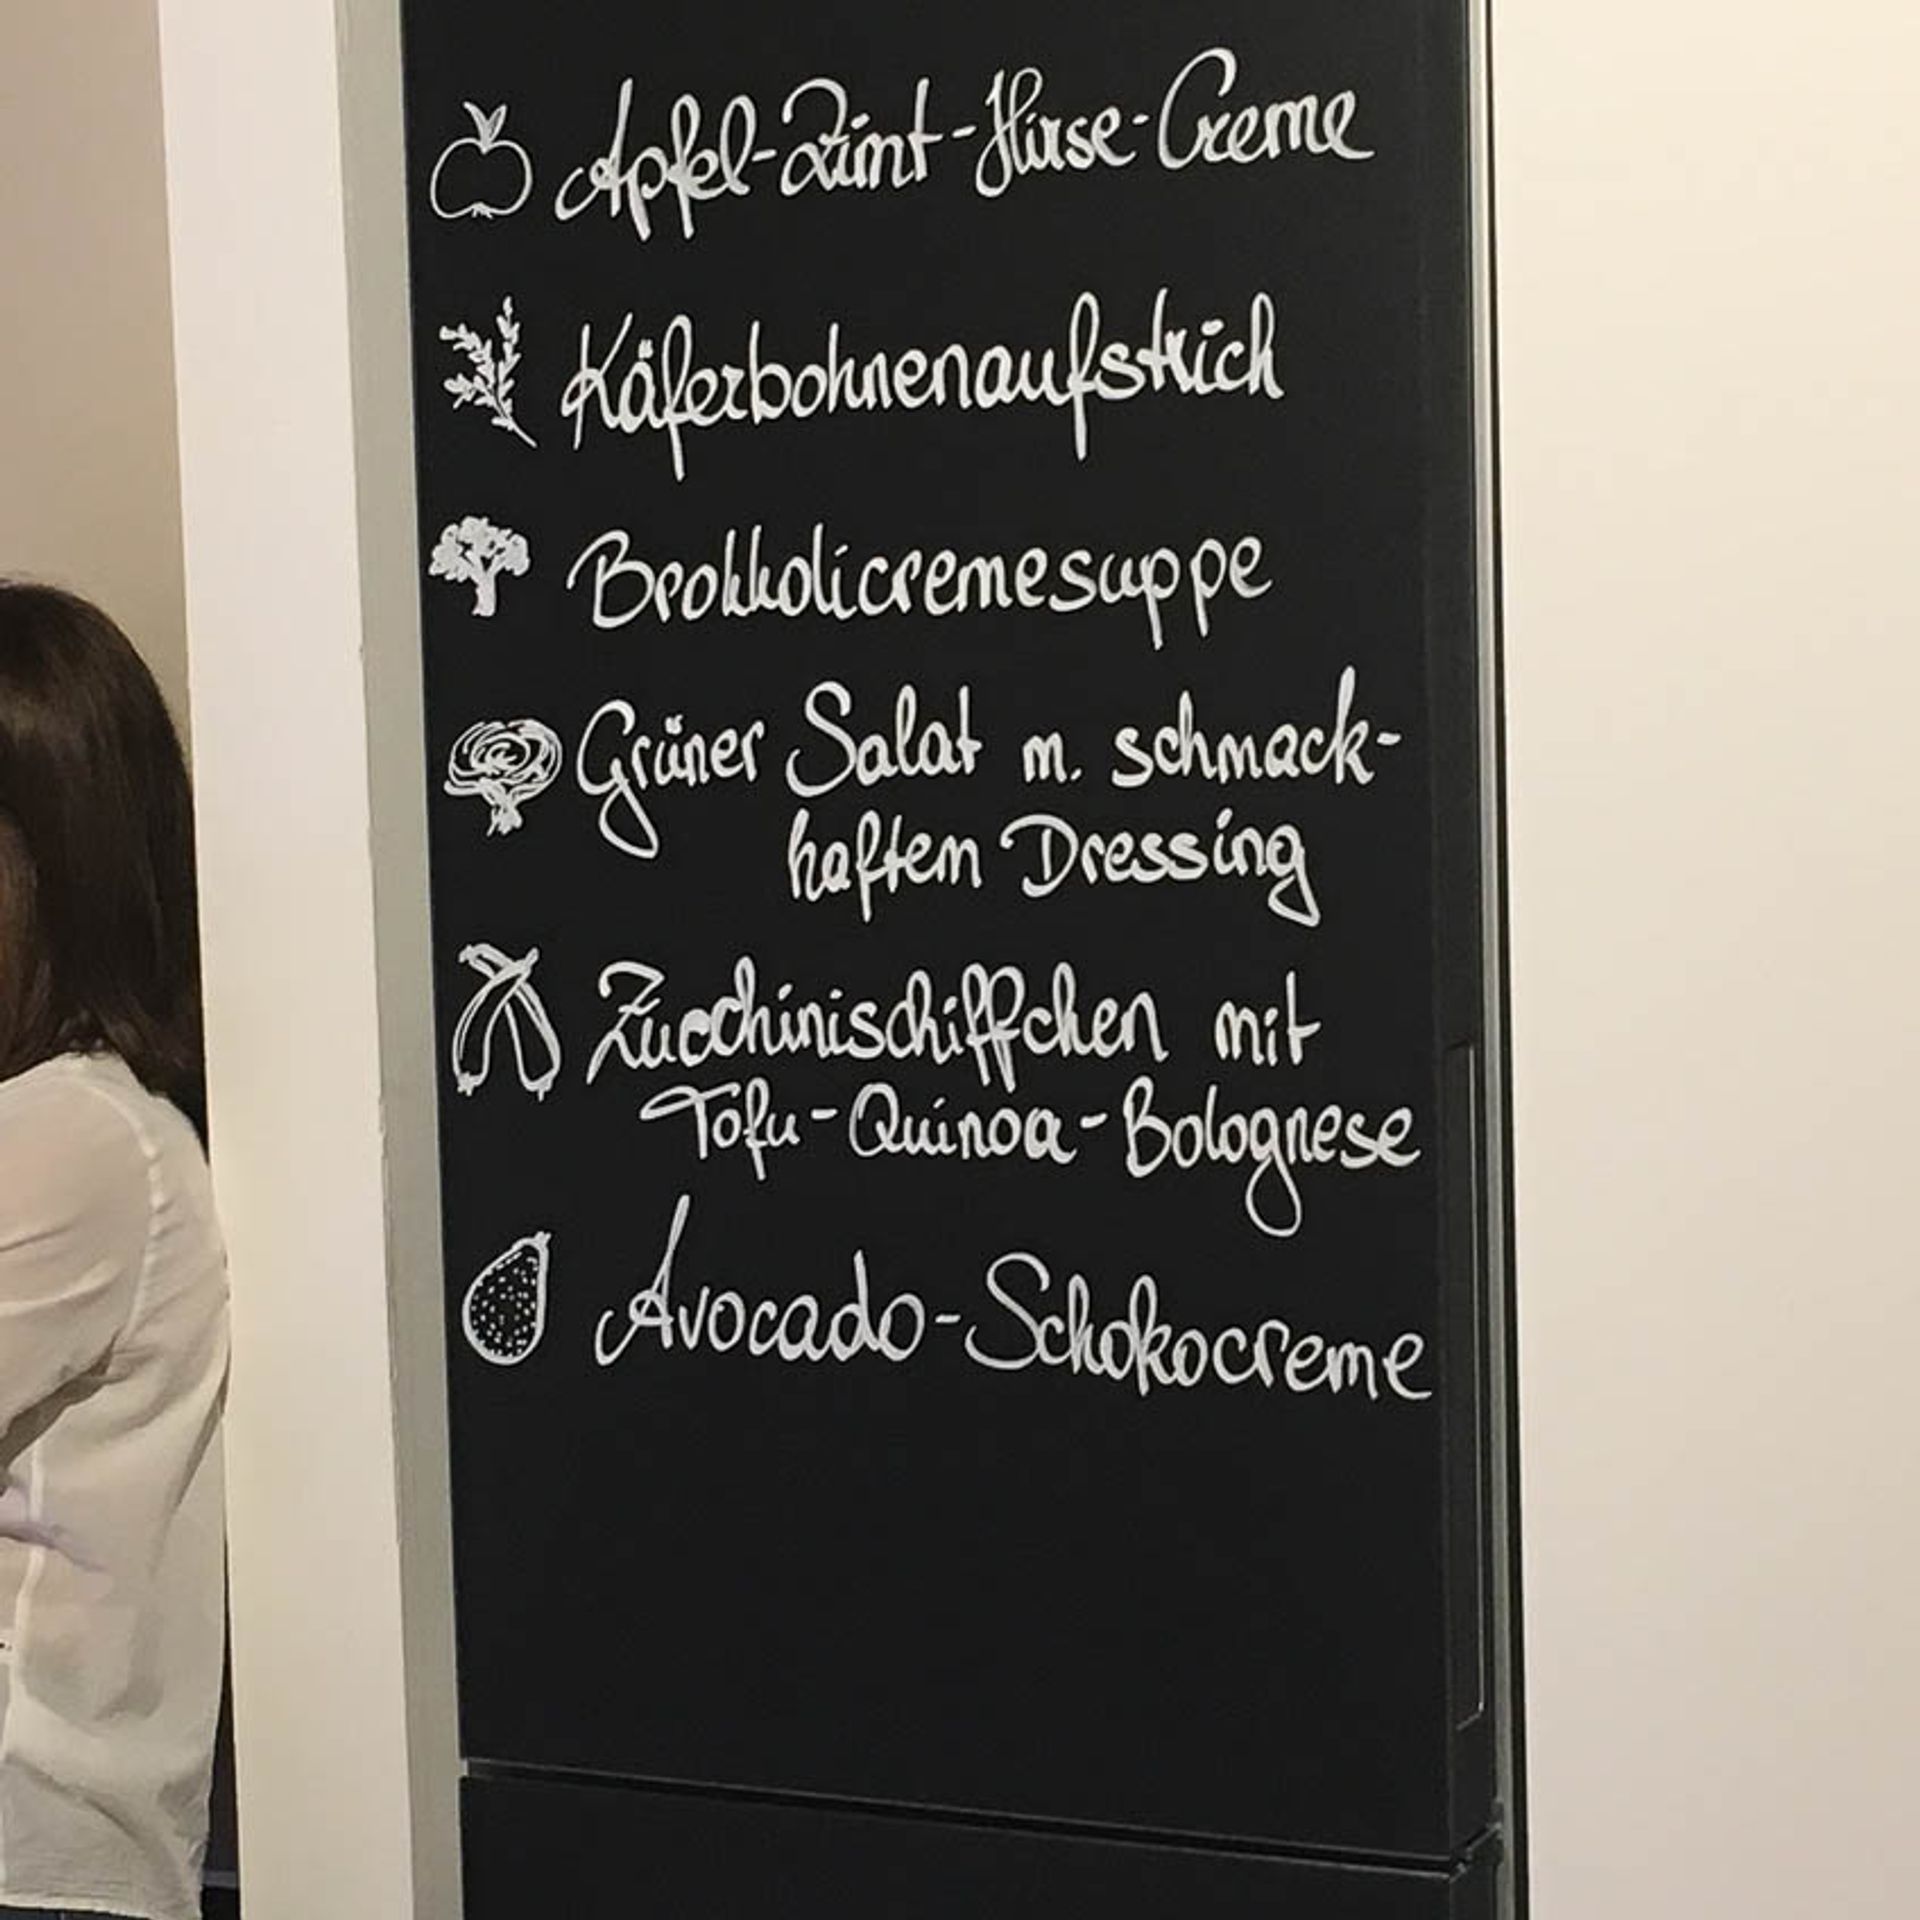 Apfel-Zimt-Hirse-Creme
Käferbohnenaufstrich
Brokkolicremesuppe
Grüner Salat m. schmack-
haftem Dressing
Zucchinischiffchen mit
Tofu-Quinoa-Bolognese
Avocado-Schokocreme